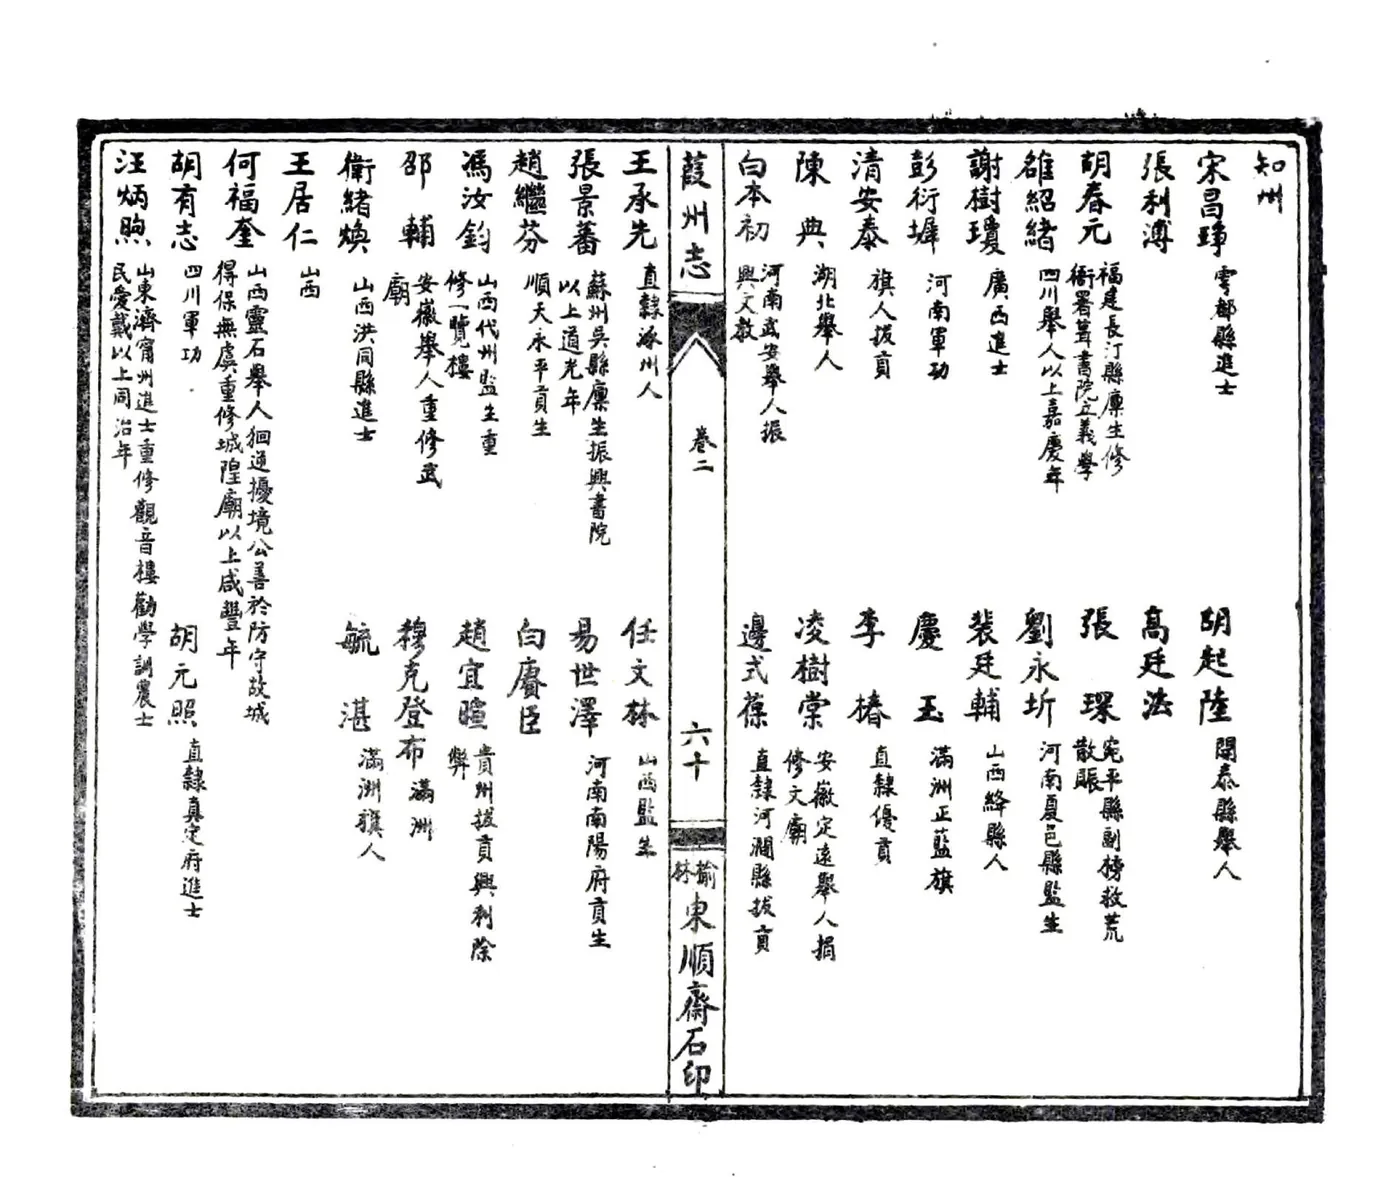 知州
宋昌琤 雩都縣進士 胡起陸 開泰縣舉人
張利溥 高廷法
胡春元 福建長汀縣廩生修衙署葺書院立義學 張琛 宛平縣副榜救荒散賑
雒紹緒 四川舉人以上嘉慶年 劉永圻 河南夏邑縣監生
謝樹瓊 廣西進士 裴廷輔 山西絳縣人
彭衍墀 河南軍功 慶玉 滿洲正藍旗
清安泰 旗人拔貢 李椿 直隸優貢
陳典 湖北舉人 凌樹棠 安徽定遠舉人捐修文廟
白本初 河南武安舉人振興文教 邊式葆 直隸河澗縣拔貢
葭州志 卷二 六十 榆林東順齋石印
王承先 直隸涿州人 任文林 山西監生
張景蕃 蘇州吳縣廩生振興書院以上道光年 易世澤 河南南陽府貢生
趙繼芬 順天永平貢生 白賡臣
馮汝鈞 山西代州監生重修一覽樓 趙宜暄 貴州拔貢興利除弊
邵輔 安徽舉人重修武廟 穆克登布 滿洲
衛緒煥 山西洪同縣進士 毓湛 滿洲旗人
王居仁 山西
何福奎 山西靈石舉人狪逋擾境公善於防守故城得保無虞重修城隍廟以上咸豐年
胡有志 四川軍功 胡元照 直隸真定府進士
汪炳煦 山東濟甯州進士重修觀音樓勸學訓農士民愛戴以上同治年